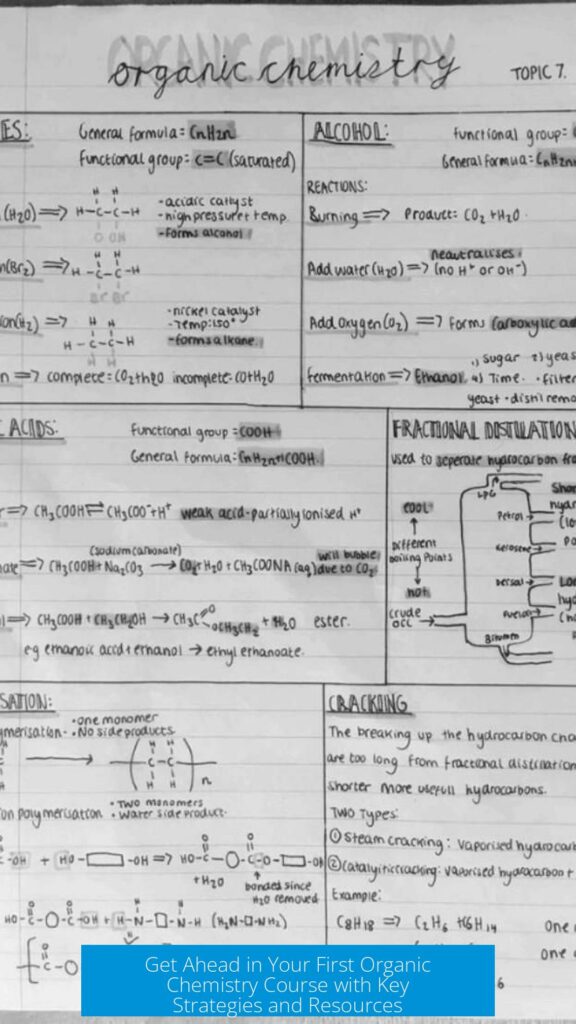 ORGANIC CHEMISTRY
organic chemistry
TOPIC 7.
ES:
General formula = CnH2n
Functional group: C=C (saturated)
(H2O) ⟹
H-C-C-H
H H
O OH
- acidic catlyst
- high pressure + temp.
- forms alcohol
(Br2) ⟹
H H
H-C-C-H
Br Br
ion(H2) ⟹
H H
H-C-C-H
H H
- nickel catalyst
- Temp: 150°
- forms alkane.
n ⟹ complete = CO2+H2O incomplete = CO+H2O
ALCOHOL:
Functional group =
General formula = CnH2n+
REACTIONS:
Burning ⟹ Product: CO2 + H2O
Add water (H2O) ⟹ neautralises (no H+ or OH-)
Add oxygen (O2) ⟹ Forms carboxylic ac
Fermentation ⟹ Ethanol
1) sugar 2) yeas
4) Time. • filter
yeast • distil remo
ACIDS:
Functional group = COOH
General formula: CnH2n+1COOH.
⟹ CH3COOH ⇌ CH3COO- + H+ weak acid - partially ionised H+
(sodium carbonate)
nate ⟹ CH3COOH + Na2CO3 → CO2 + H2O + CH3COONA (aq) will bubble due to CO2
l ⟹ CH3COOH + CH3CH2OH → CH3C O OCH2CH2 + H2O ester.
eg ethanoic acid + ethanol → ethyl ethanoate.
FRACTIONAL DISTILATION
used to seperate hydrocarbon fra
COOL
Different
boiling Points
hot
crude
OIL
LPG
Petrol
Kerosene
Deisal
Fuel oil
Bitumen
Shor
hydr
(lo
po
Lon
hyd
(hi
SATION:
• one monomer
ymerisation • No side products
H H
C-C
H H
n
on polymerisation
• Two monomers
• Water side product.
O
C-OH + HO-□-OH ⟹ HO-C-O-C-O-□-OH
+ H2O
bonded since
H2O removed
HO-C-O-C-OH + H-N-□-N-H (H2N-□-NH2)
C-O
CRACKING
The breaking up the hydrocarbon cha
are too long from fractional distilation
shorter more usefull hydrocarbons.
TWO Types:
① Steam cracking: vaporised hydrocarb
② Catalytic cracking: vaporised hydrocarbon +
Example:
C8H18 ⟹ C2H6 + C6H14
one
one
6
Get Ahead in Your First Organic
Chemistry Course with Key
Strategies and Resources